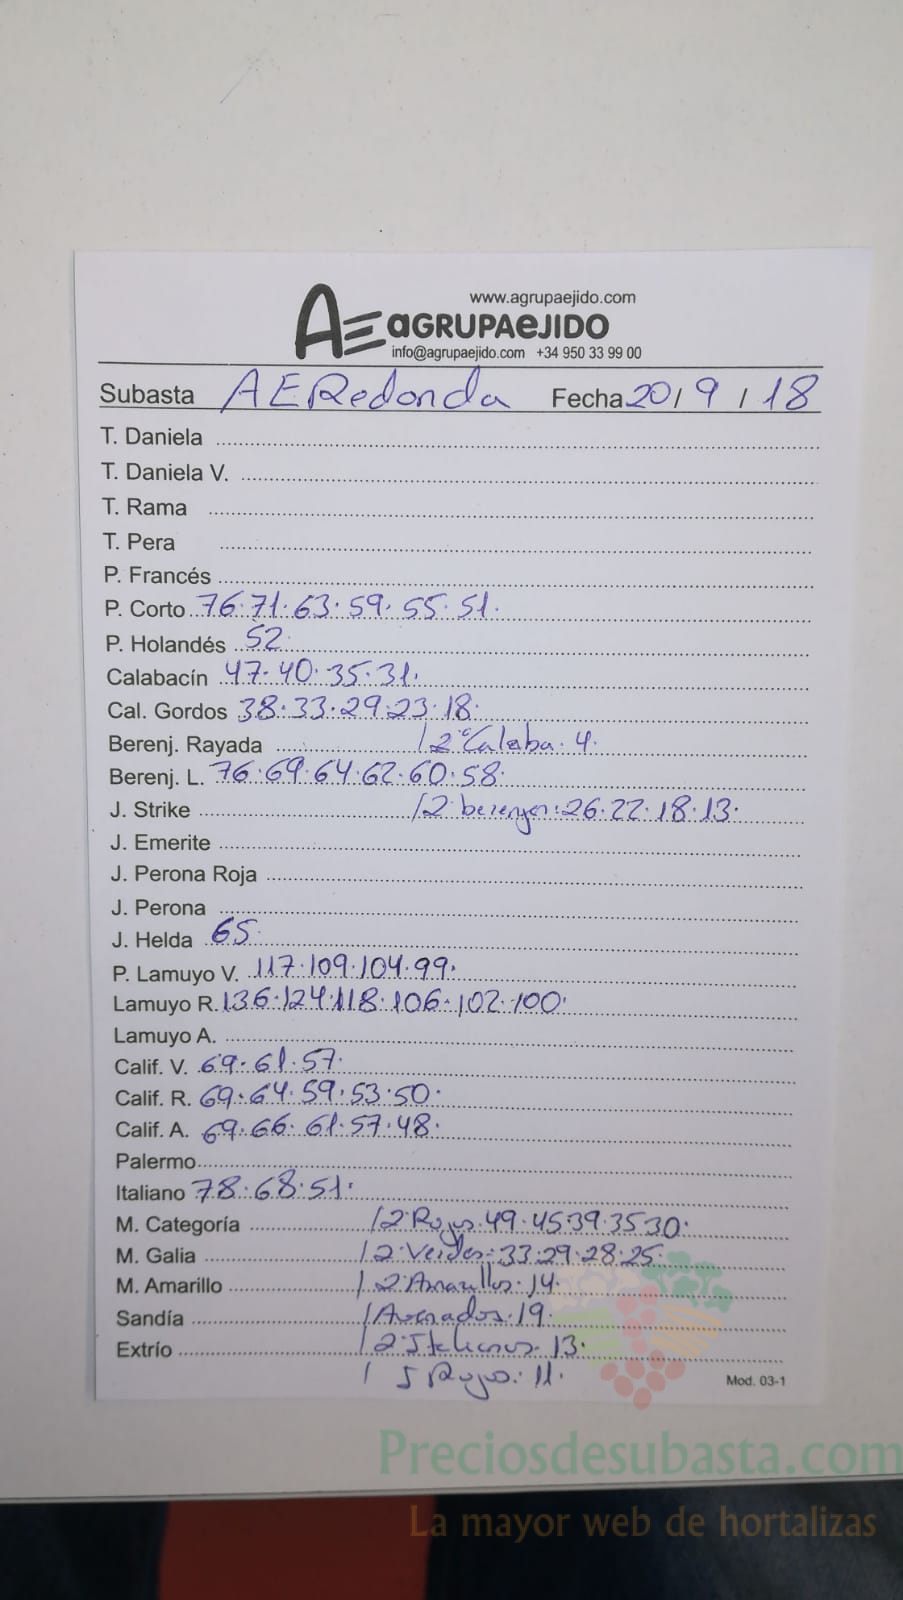 www.agrupaejido.com
AE aGRUPAeJIDO
info@agrupaejido.com +34 950 33 99 00
Subasta AERedonda Fecha 20/9/18
T. Daniela
T. Daniela V.
T. Rama
T. Pera
P. Francés
P. Corto 76·71·63·59·55·51·
P. Holandés 52·
Calabacín 47·40·35·31·
Cal. Gordos 38·33·29·23·18·
Berenj. Rayada /2ª Calaba· 4·
Berenj. L. 76·69·64·62·60·58·
J. Strike /2 berenjen: 26·22·18·13·
J. Emerite
J. Perona Roja
J. Perona
J. Helda 65·
P. Lamuyo V. 117·109·104·99·
Lamuyo R. 136·124·118·106·102·100·
Lamuyo A.
Calif. V. 69·61·57·
Calif. R. 69·64·59·53·50·
Calif. A. 69·66·61·57·48·
Palermo
Italiano 78·68·51·
M. Categoría /2·Rojos·49·45·39·35·30·
M. Galia /2·Verdes·33·29·28·25·
M. Amarillo /2 Amarillos·14·
Sandía /Asurados·19·
Extrío /2 Italianos· 13·
/ Rojo: 11·
Mod. 03-1
Preciosdesubasta.com
La mayor web de hortalizas